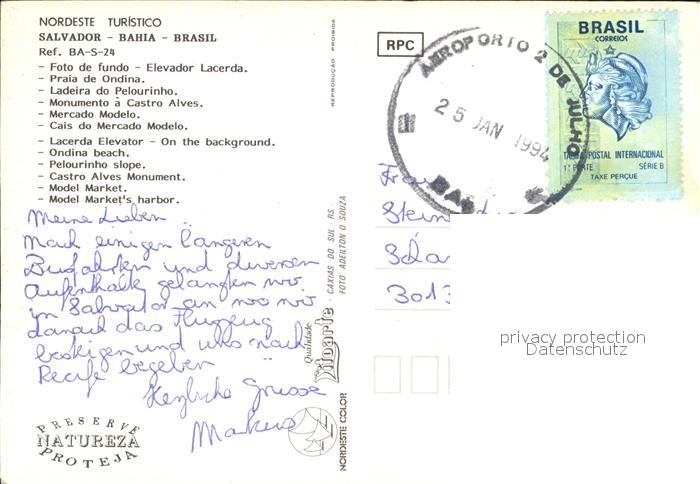 NORDESTE TURÍSTICO
SALVADOR - BAHIA - BRASIL
Ref. BA-S-24
- Foto de fundo - Elevador Lacerda.
- Praia de Ondina.
- Ladeira do Pelourinho.
- Monumento à Castro Alves.
- Mercado Modelo.
- Cais do Mercado Modelo.
- Lacerda Elevator - On the background.
- Ondina beach.
- Pelourinho slope.
- Castro Alves Monument.
- Model Market.
- Model Market's harbor.
Meine Lieben
Nach einigen längeren
Busfahrten und diversen
Aufenthalte gelangten wir
in Salvador an wo wir
danach das Flugzeug
bestiegen und uns nach
Recife begeben
Herzliche Grüsse
Markus
PRESERVE
NATUREZA
PROTEJA
REPRODUÇÃO PROIBIDA
CAXIAS DO SUL RS -
FOTO ADEILTON O SOUZA
Qualidade
NORDESTE COLOR
RPC
AEROPORTO 2 DE JULHO
25 JAN 1994
BRASIL
CORREIOS
TAXA POSTAL INTERNACIONAL
1º PORTE SÉRIE B
TAXE PERÇUE
3013
privacy protection
Datenschutz